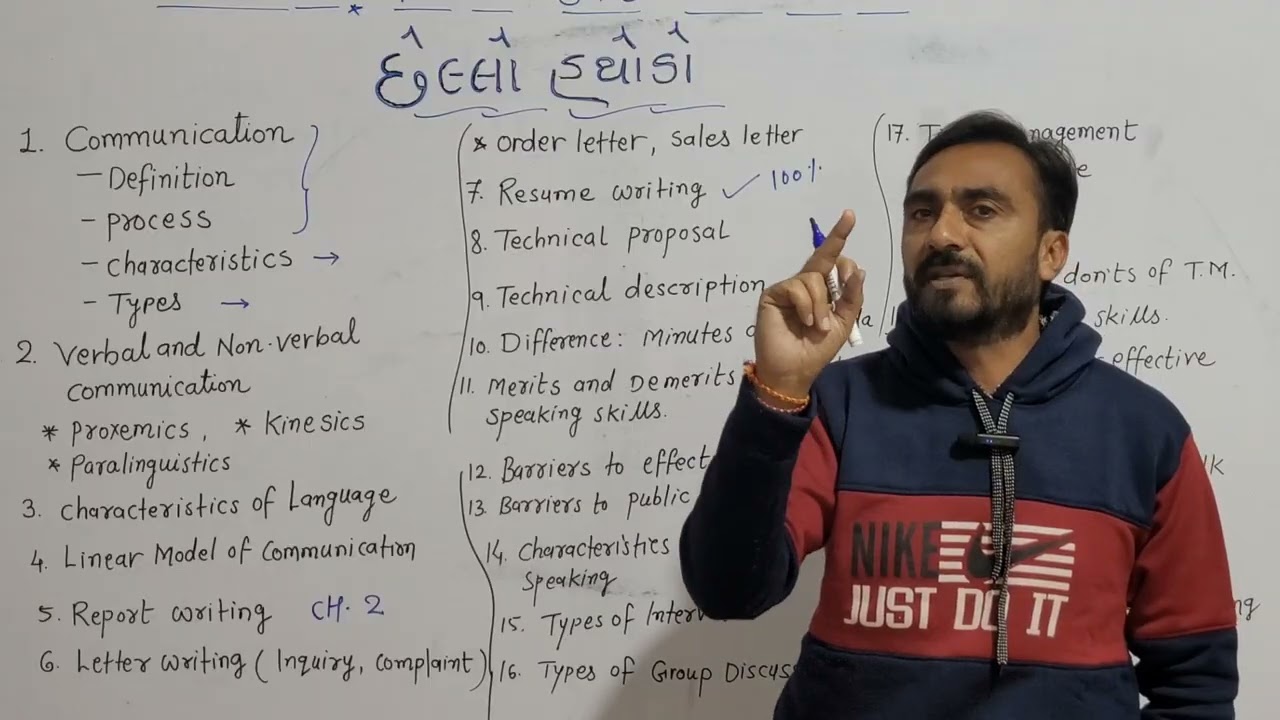 છેલ્લો હથોડો
1. Communication
- Definition
- process
- characteristics →
- Types →
2. Verbal and Non-verbal
communication
* Proxemics, * Kinesics
* Paralinguistics
3. characteristics of Language
4. Linear Model of Communication
5. Report writing CH. 2
6. Letter writing (Inquiry, complaint)
* order letter, sales letter
7. Resume writing ✓ 100%
8. Technical proposal
9. Technical description
10. Difference: Minutes
11. Merits and Demerits
speaking skills.
12. Barriers to
13. Barriers to public
14. Characteristics
speaking
15. Types of
16. Types of Group
17.
don'ts of T.M.
skills.
effective
NIKE
JUST DO IT